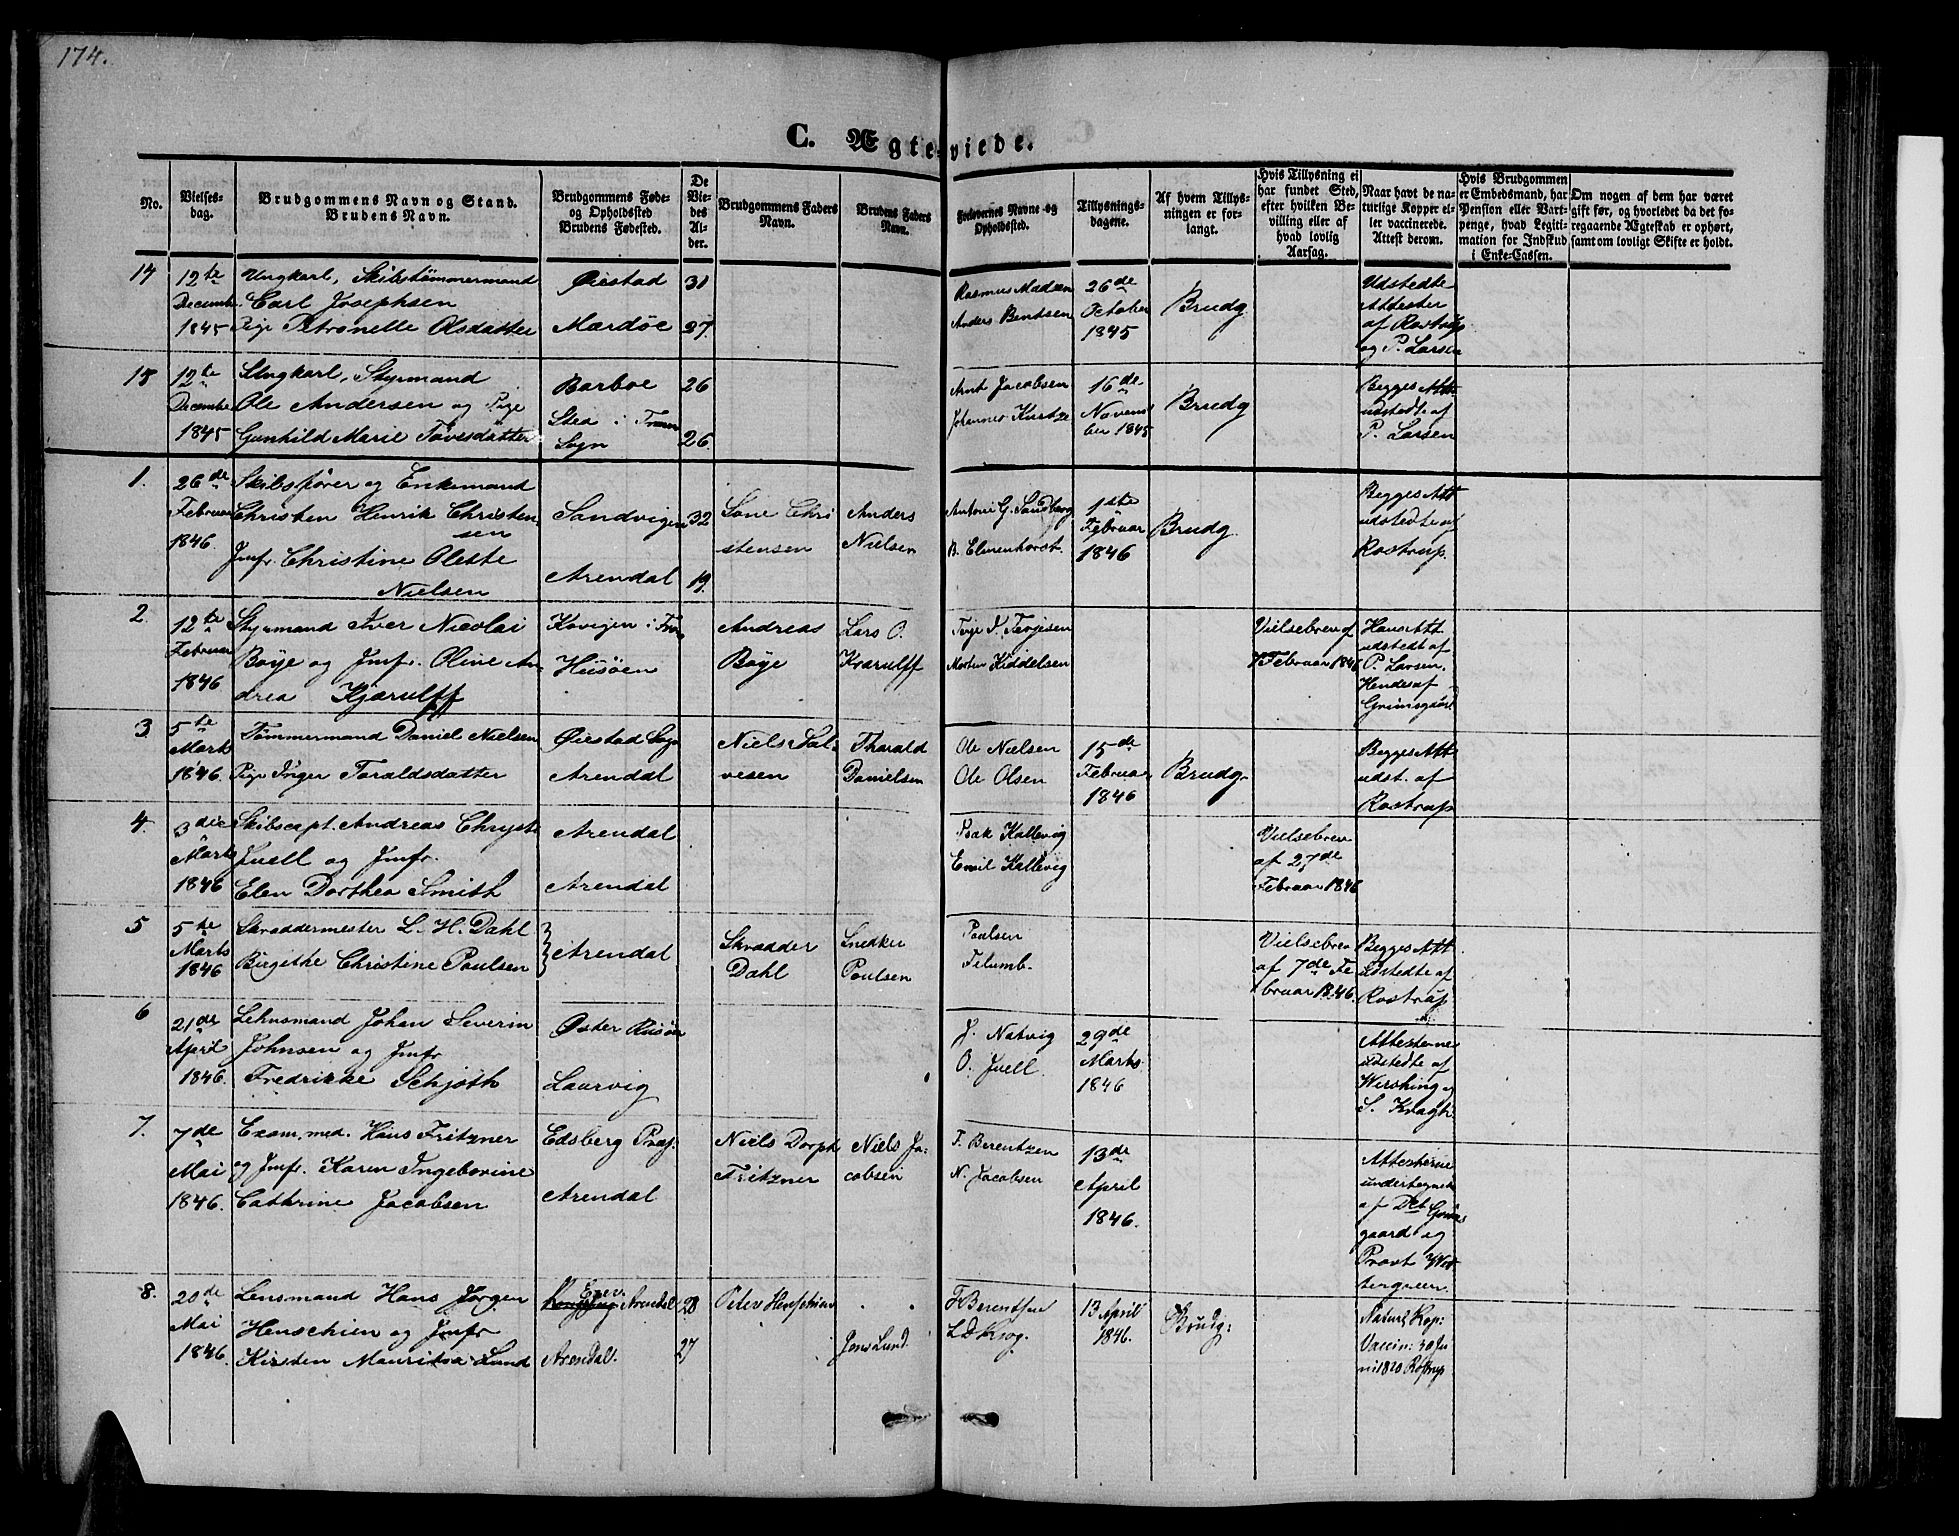 174.
C. Ægtevviede.
No.
Vielses-
dag.
Brudgommens Navn og Stand.
Brudens Navn.
Brudgommens Føde-
og Opholdssted
Brudens Fødested.
De
Vie-
des
Al-
der.
Brudgommens Faders
Navn.
Brudens Faders
Navn.
Forlovernes Navne og
Opholdssted.
Tillysnings-
dagene.
Af hvem Tillys-
ningen er for-
langt.
Hvis Tillysning ei
har fundet Sted,
efter hvilken Be-
villing eller af
hvad lovlig
Aarsag.
Naar havt de na-
turlige Kopper el-
ler vaccinerede.
Attest derom.
Hvis Brudgommen
er Embedsmand, har
Pension eller Vart-
penge, hvad Legiti-
mation for Indskud
i Enke-Cassen.
Om nogen af dem har været
gift før, og hvorledet da det fo-
regaaende Ægteskab er ophørt,
samt om lovligt Skifte er holdt.
17
12te
Decembr.
1845
Ungkarl, Skibstømmermand
Carl Josephsen
Pige Petronelle Olsdatter
Øiestad
Mærdøe
31
37.
Rasmus Madsen
Anders Bentsen
26de
October
1845
Brudg
Udstedte
Attester
af Rostrup
og P. Larsen
18
12te
Decembr
1845
Ungkarl, Styrmand
Ole Andersen og Pige
Gunhild Marie Tovesdatter
Barboe
Stea i Tromø
Sogn
26
26.
Arnt Jacobsen
Johannes Kurtze
16de
Novem
ber 1845
Brudg
Begges Att
udstedte af
P. Larsen
1.
26de
Februar
1846.
Skibsfører og Enkemand
Christen Henrik Christen-
sen
Jmfr. Christine Oleste
Nielsen
Sandvigen
Arendal
32
19.
Sone Chri
stensen
Anders
Nielsen
Antoni G. Sandberg
B. Elmenhorst.
1ste
Februar
1846
Brudg.
Begges Att
udstedte af
Rostrup.
2.
12te
Februar
1846
Styrmand Iver Nicolai
Boye og Jmfr. Oline An-
drea Kjærulff
Kovigen i Tro
Husøen
Andreas
Boye
Lars O.
Kærulff
Terje T. Terjesen
Morten Kiddelsen
Vielsebrev af
7 Februar 1846
Hans Att
udstedt af
P. Larsen.
Hendes af
Grimsgaard
3.
5te
Marts
1846.
Tømmermand Daniel Nielsen
Pige Inger Taraldsdatter
Øiestad Sogn
Arendal
Niels Sal-
vesen
Tharald
Danielsen
Ole Nielsen
Ole Olsen
15de
Februar
1846
Brudg.
Begges Att
udst. af
Rostrup
4.
3die
Marts
1846
Skibscapt. Andreas Chryste
Juell og Jmfr.
Elen Dorthea Smith
Arendal
Arendal
Isak Kallevig
Emil Kallevig
Vielsebrev
af 27de
Februar 1846
5
5te
Marts
1846
Skræddermester L. H. Dahl
Birgithe Christine Poulsen
Arendal
Skrædder
Dahl
Snedker
Poulsen
Poulsen
Filumb.
Vielsebrev
af 7de Fe
bruar 1846.
Begges Att
Udstedte af
Rostrup
6
21de
April
1846.
Lehnsmand Johan Severin
Johnsen og Jmfr
Fredrikke Schjøth
Øster Riisøer
Laurvig
J. Natvig
O. Juell.
29de
Marts
1846
Attesterne
udstedte af
Wershing og
S. Kragh
7.
7de
Mai
1846.
Exam. med. Hans Fritzner
og Jmfr. Karen Ingeborine
Cathrine Jacobsen
Edsberg Præg.
Arendal
Niels Dorph
Fritzner
Niels Ja-
cobsen
F. Berentzen
N. Jacobsen
13de
April
1846.
Attesterne
undertegnede
af Dct Grims
gaard og
Provt Wes
tergreen.
8.
20de
Mai
1846.
Lensmand Hans Jørgen
Henschien og Jmfr
Kirsten Mauritza Lund
Arendal
Arendal.
28
27
Peter Henschien
Jens Lund.
F Berentsen
L D Krog.
13 April
1846.
Brudg:
Naturl Kop:
Vaccin: 30 Ju
ni 1820 Rostrup